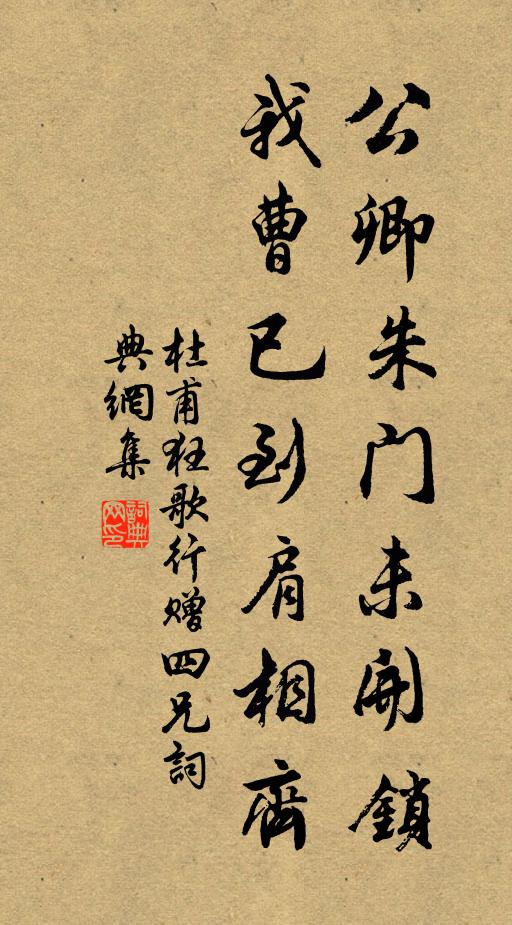 公卿朱门未開鎖
我曹已到肩相齊
杜甫狂歌行赠四兄詞
典網集
詞典网印